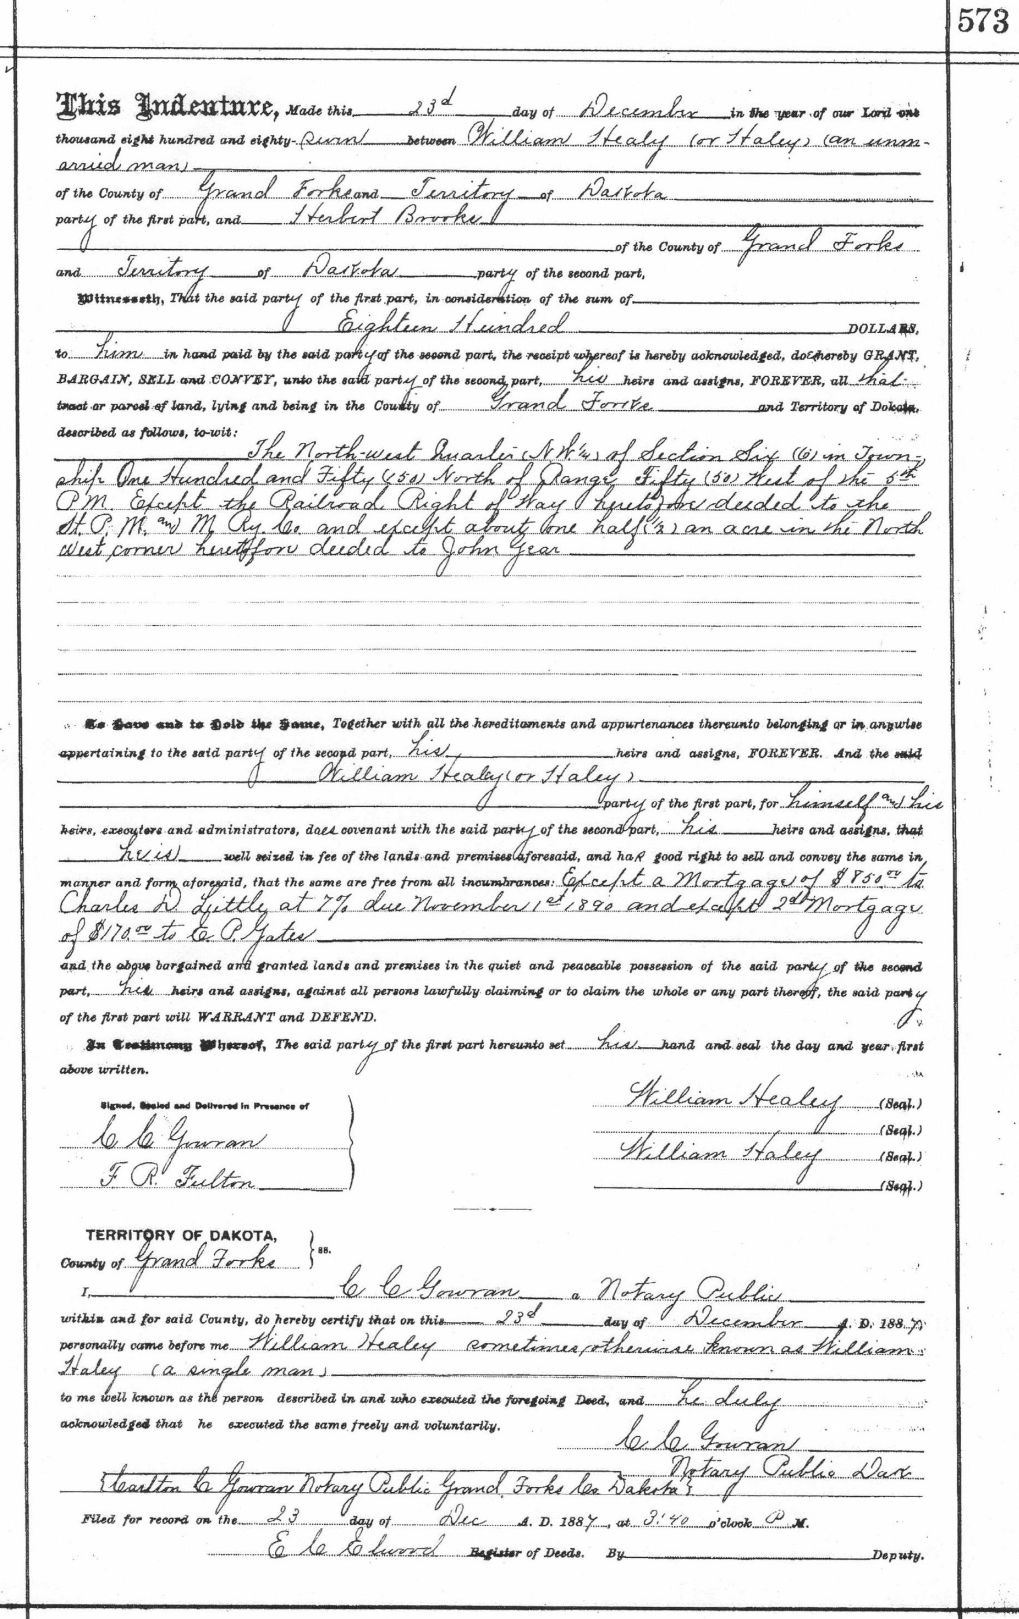 573
This Indenture, Made this 23d day of December in the year of our Lord one
thousand eight hundred and eighty-seven between William Healy (or Haley) (an unm-
arried man)
of the County of Grand Forks and Territory of Dakota
party of the first part, and Herbert Brooks
of the County of Grand Forks
and Territory of Dakota party of the second part,
Witnesseth, That the said party of the first part, in consideration of the sum of
Eighteen Hundred DOLLARS,
to him in hand paid by the said party of the second part, the receipt whereof is hereby acknowledged, does hereby GRANT,
BARGAIN, SELL and CONVEY, unto the said party of the second part, his heirs and assigns, FOREVER, all that
tract or parcel of land, lying and being in the County of Grand Forks and Territory of Dakota,
described as follows, to-wit:
The North-west Quarter (N W 1/4) of Section Six (6) in Town-
ship One Hundred and Fifty (150) North of Range Fifty (50) West of the 5th
P.M. Except the Railroad Right of Way heretofore deeded to the
St. P. M. and M. Ry. Co. and except about one half (1/2) an acre in the North
west corner heretofore deeded to John Gear
To Have and to Hold the Same, Together with all the hereditaments and appurtenances thereunto belonging or in anywise
appertaining to the said party of the second part, his heirs and assigns, FOREVER. And the said
William Healy (or Haley)
party of the first part, for himself and his
heirs, executors and administrators, does covenant with the said party of the second part, his heirs and assigns, that
he is well seized in fee of the lands and premises aforesaid, and has good right to sell and convey the same in
manner and form aforesaid, that the same are free from all incumbrances: Except a Mortgage of $850.00 to
Charles D. Little at 7% due November 1st 1890 and except 2d Mortgage
of $170.00 to C. P. Gates
and the above bargained and granted lands and premises in the quiet and peaceable possession of the said party of the second
part, his heirs and assigns, against all persons lawfully claiming or to claim the whole or any part thereof, the said party
of the first part will WARRANT and DEFEND.
In Testimony Whereof, The said party of the first part hereunto set his hand and seal the day and year first
above written.
Signed, Sealed and Delivered in Presence of
C C Gowran
F. R. Fulton
William Healey (Seal.)
(Seal.)
William Haley (Seal.)
(Seal.)
TERRITORY OF DAKOTA,
County of Grand Forks } ss.
I, C C Gowran a Notary Public
within and for said County, do hereby certify that on this 23d day of December A. D. 1887,
personally came before me William Healey sometimes otherwise known as William
Haley (a single man)
to me well known as the person described in and who executed the foregoing Deed, and he duly
acknowledged that he executed the same freely and voluntarily.
C C Gowran
Notary Public Dak
{Carlton C Gowran Notary Public Grand Forks Co Dakota}
Filed for record on the 23 day of Dec A. D. 1887, at 3:40 o'clock P M.
E C Elwood Register of Deeds. By Deputy.